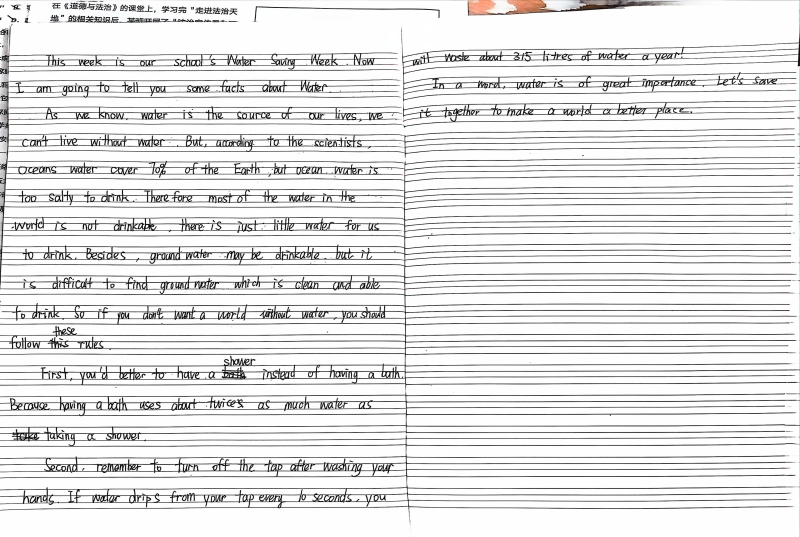 在《道德与法治》的课堂上，学习完“走进法治天
地”的相关知识后，某班开展了
This week is our school's Water Saving Week. Now
I am going to tell you some facts about Water.
As we know, water is the source of our lives, we
can't live without water. But, according to the scientists,
Oceans water cover 70% of the Earth, but ocean water is
too salty to drink. Therefore most of the water in the
world is not drinkable, there is just little water for us
to drink. Besides, ground water may be drinkable. but it
is difficult to find ground water which is clean and able
to drink. So if you don't want a world without water, you should
these
follow this rules.
shower
First, you'd better to have a bath instead of having a bath.
Because having a bath uses about twices as much water as
take taking a shower.
Second, remember to turn off the tap after washing your
hands. If water drips from your tap every 10 seconds, you
will waste about 315 litres of water a year!
In a word, water is of great importance. Let's save
it together to make a world a better place.